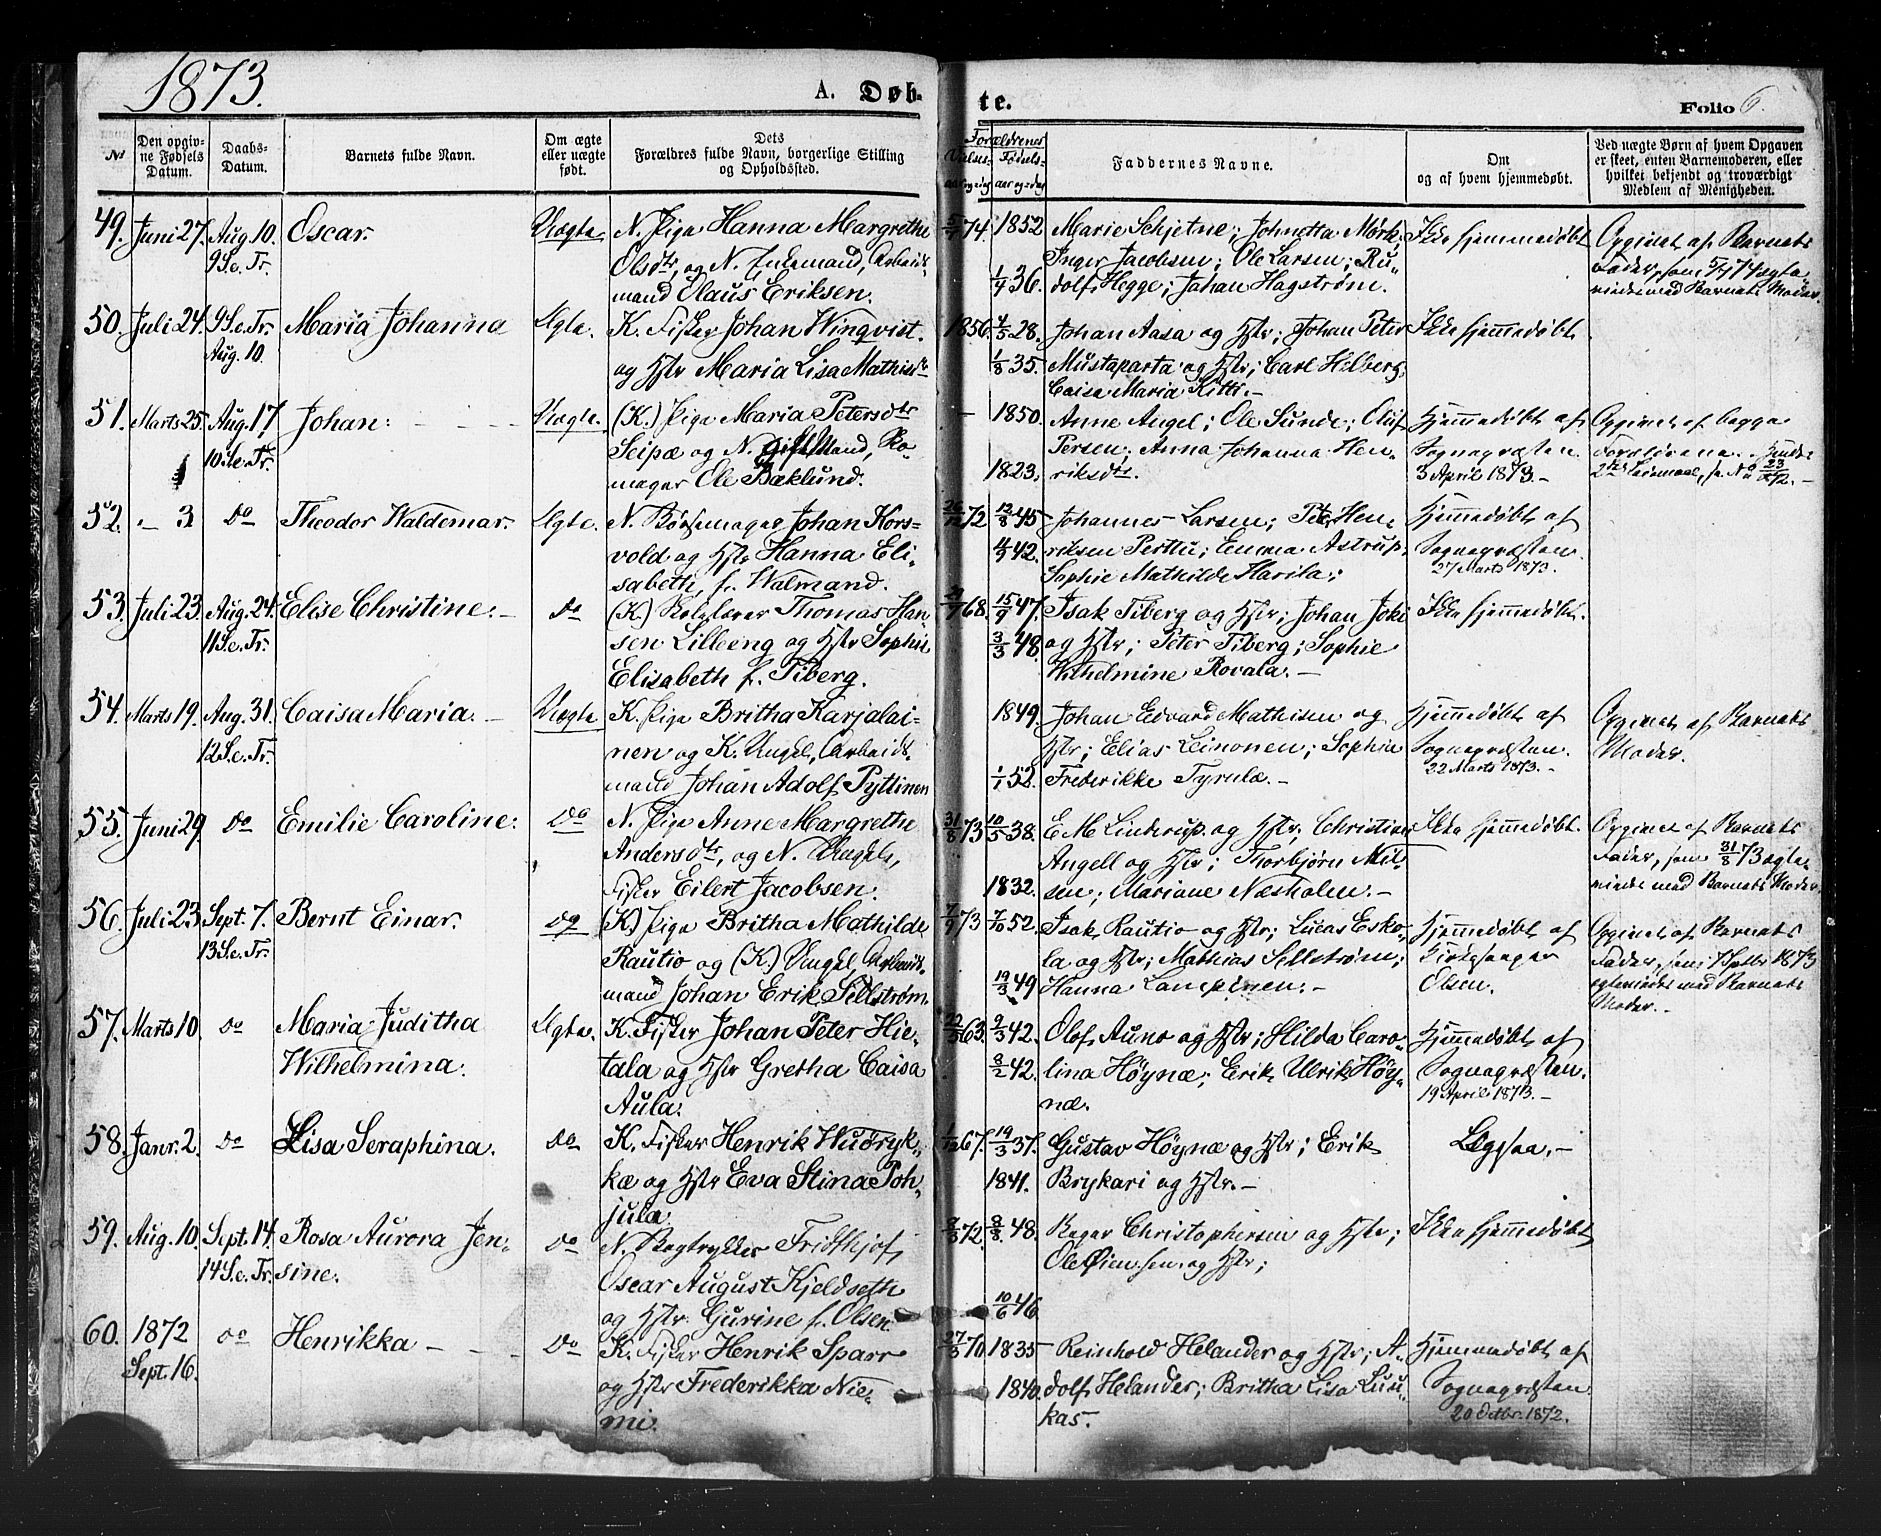 1873.
A. Døb-
te.
Folio 6.
№
Den opgiv-
ne Fødsels
Datum.
Daabs-
Datum.
Barnets fulde Navn.
Om ægte
eller uægte
født.
Dets
Forældres fulde Navn, borgerlige Stilling
og Opholdssted.
Forældrenes
Fødsels-
Faddernes Navne.
Om
og af hvem hjemmedøbt.
Ved uægte Børn af hvem Opgaven
er skeet, enten Barnemoderen, eller
hvilket bekjendt og troværdigt
Medlem af Menigheden.
49. Juni 27. Aug. 10. Oscar. Uægte. N. Pige Hanna Margrethe 5/7 74. 1852 Marie Schjetne; Johnetta Mørk; Ikke hjemmedøbt Opgivet af Barnets
9 S. e. Tr. Olsdtr, og N. Enkemand, Arbeids- Inger Jacobsen; Ole Larsen; Ru- Fader, som 5/7 74 ægte-
mand Olaus Eriksen. 1/4 36. dolf Hegge; Johan Hagstrøm. viedes med Barnets Moder.
50. Juli 24. 9 S. e. Tr. Maria Johanna Ægte. K. Fisker Johan Winqvist 1856. 4/5 28. Johan Aasa og Hstr; Johan Peter Ikke hjemmedøbt.
Aug. 10. og Hstr Maria Lisa Mathisdtr 1/8 35. Mustaparta og Hstr; Carl Hilberg;
Caisa Maria Kitti. -
51. Marts 25. Aug. 17, Johan: Uægte. (K.) Pige Maria Petersdtr - 1850. Anne Angel; Ole Sunde; Oluf Hjemmedøbt af Opgivet af begge
10 S. e. Tr. Seipæ og N. gift Mand, Ro- Persen; Anna Johanna Hen- Sognepræsten Forældrene.
mager Ole Bæklund. 1823. riksdtr. 3 April 1873. - 2det Leiermaal, se No 23/72. -
52. - 3 do Theodor Waldemar. Ægte. N. Børsemager Johan Kors- 26/12 72 12/8 45 Johannes Larsen; Peter Hen- Hjemmedøbt af
vold og Hstr Hanna Eli- 4/9 42. riksen Perttu; Emma Astrup; Sognepræsten.
sabeth, f. Walmand. Sophie Mathilde Harila; 27 Marts 1873.
53. Juli 23. Aug. 24. Elise Christine: - do (K.) Thomas Han- 68. 15/9 47. Isak Tiberg og Hstr; Johan Joki Ikke hjemmedøbt.
11 S. e. Tr. sen Lilleeng og Hstr Sophie 3/3 48. og Hstr; Peter Tiberg; Sophie
Elisabeth f. Tiberg. Wilhelmine Rovala. -
54. Marts 19. Aug. 31. Caisa Maria. - Uægte K. Pige Britha Karjalai- 1849. Johan Edvard Mathisen og Hjemmedøbt af Opgivet af Barnets
12 S. e. Tr. nen og K. Ungk., Arbeids- Hstr; Elias Leinonen; Sophie Sognepræsten. Moder.
mand Johan Adolf Pyttinen 1/1 52. Frederikke Tyrulæ. - 22 Marts 1873. -
55. Juni 29. do Emilie Caroline: do N. Pige Anne Margrethe 31/8 73 10/5 38. E M Linderup og Hstr; Christian Ikke hjemmedøbt. Opgivet af Barnets
Andersdtr, og N. Ungk., Angell og Hstr; Thorbjørn Nil- Fader, som 31/8 73 ægte-
Fisker Eilert Jacobsen. 1832. sen; Mariane Næsholen. - viedes med Barnets Moder.
56. Juli 23 Sept. 7. Bernt Einar. do (K) Pige Britha Mathilde 7/9 73 7/10 52. Isak Rautio og Hstr; Lucas Esko- Hjemmedøbt af Opgivet af Barnets
13 S. e. Tr. Rautio og (K.) Ungk., Arbeids- la og Hstr; Mathias Sellstrøm; Kirkesanger Fader, som 7 Septbr 1873
mand Johan Erik Sellstrøm. 19/3 49 Hanna Lampinen. - Olsen. ægteviedes med Barnets
Moder. -
57. Marts 10. do Maria Juditha Ægte. K. Fisker Johan Peter Hie- 63. 2/3 42. Olof Auno og Hstr; Hilda Caro- Hjemmedøbt af
Wilhelmina. tala og Hstr Gretha Caisa 8/2 42. lina Høynæ; Erik Ulrik Høy- Sognepræsten.
Aula. næ. 19 April 1873. -
58. Janr. 2. do Lisa Seraphina. do K. Fisker Henrik Wuøryk- 67. 19/3 37. Gustav Høynæ og Hstr; Erik Ligesaa. -
kæ og Hstr Eva Stina Poh- 1841. Brykari og Hstr. -
jula.
59. Aug. 10. Sept. 14. Rosa Aurora Jen- do N. Bogtrykker Fridthjof 72. 8/8 48. Bager Christophersen og Hstr; Ikke hjemmedøbt
14 S. e. Tr. sine. Oscar August Kjeldseth Ole Øiensen og Hstr;
og Hstr. Gurine f. Olsen. 10/6 46
60. 1872 do Henrikka - - - do K. Fisker Henrik Sparr 27/3 70. 1835 Reinhold Helander og Hstr; A- Hjemmedøbt af
Sept. 16. og Hstr Frederikka Nie- 1840. dolf Helander; Britha Lisa Luu- Sognepræsten
mi. kas. 20 Octbr. 1872.